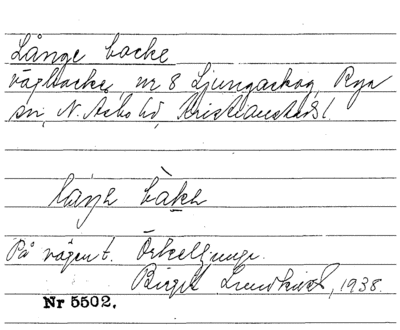 Långe backe
vägbacke, nr 8 Ljungaskog, Rya
sn, N. Åsbo hd, Kristianstads l.
På vägen t. Örkelljunga.
Birgit Lundkvist, 1938.
Nr 5502.